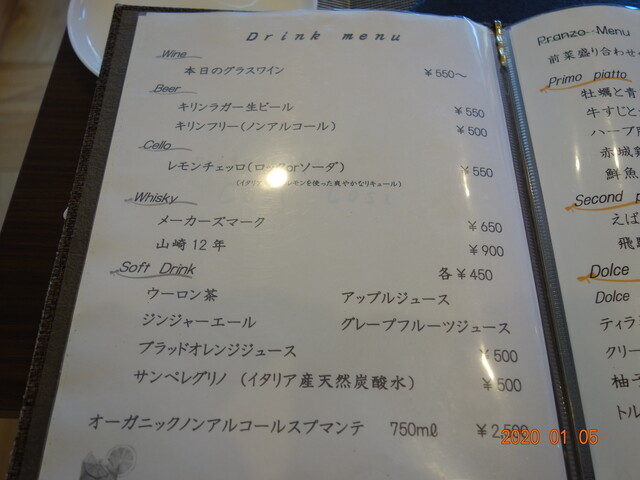 Drink menu
Wine
本日のグラスワイン ￥550～
Beer
キリンラガー生ビール ￥550
キリンフリー(ノンアルコール) ￥500
Cello
レモンチェッロ(ロックorソーダ) ￥550
(イタリア レモンを使った爽やかなリキュール)
Whisky
メーカーズマーク ￥650
山崎12年 ￥900
Soft Drink 各￥450
ウーロン茶 アップルジュース
ジンジャーエール グレープフルーツジュース
ブラッドオレンジジュース ￥500
サンペレグリノ (イタリア産天然炭酸水) ￥500
オーガニックノンアルコールスプマンテ 750mℓ ￥2,500
Pranzo Menu
前菜盛り合わせ
Primo piatto
牡蠣と青
牛すじと
ハーブ
赤城
鮮魚
Second p
えば
飛
Dolce
Dolce
ティラ
クリー
柚子
トル
2020 01 05